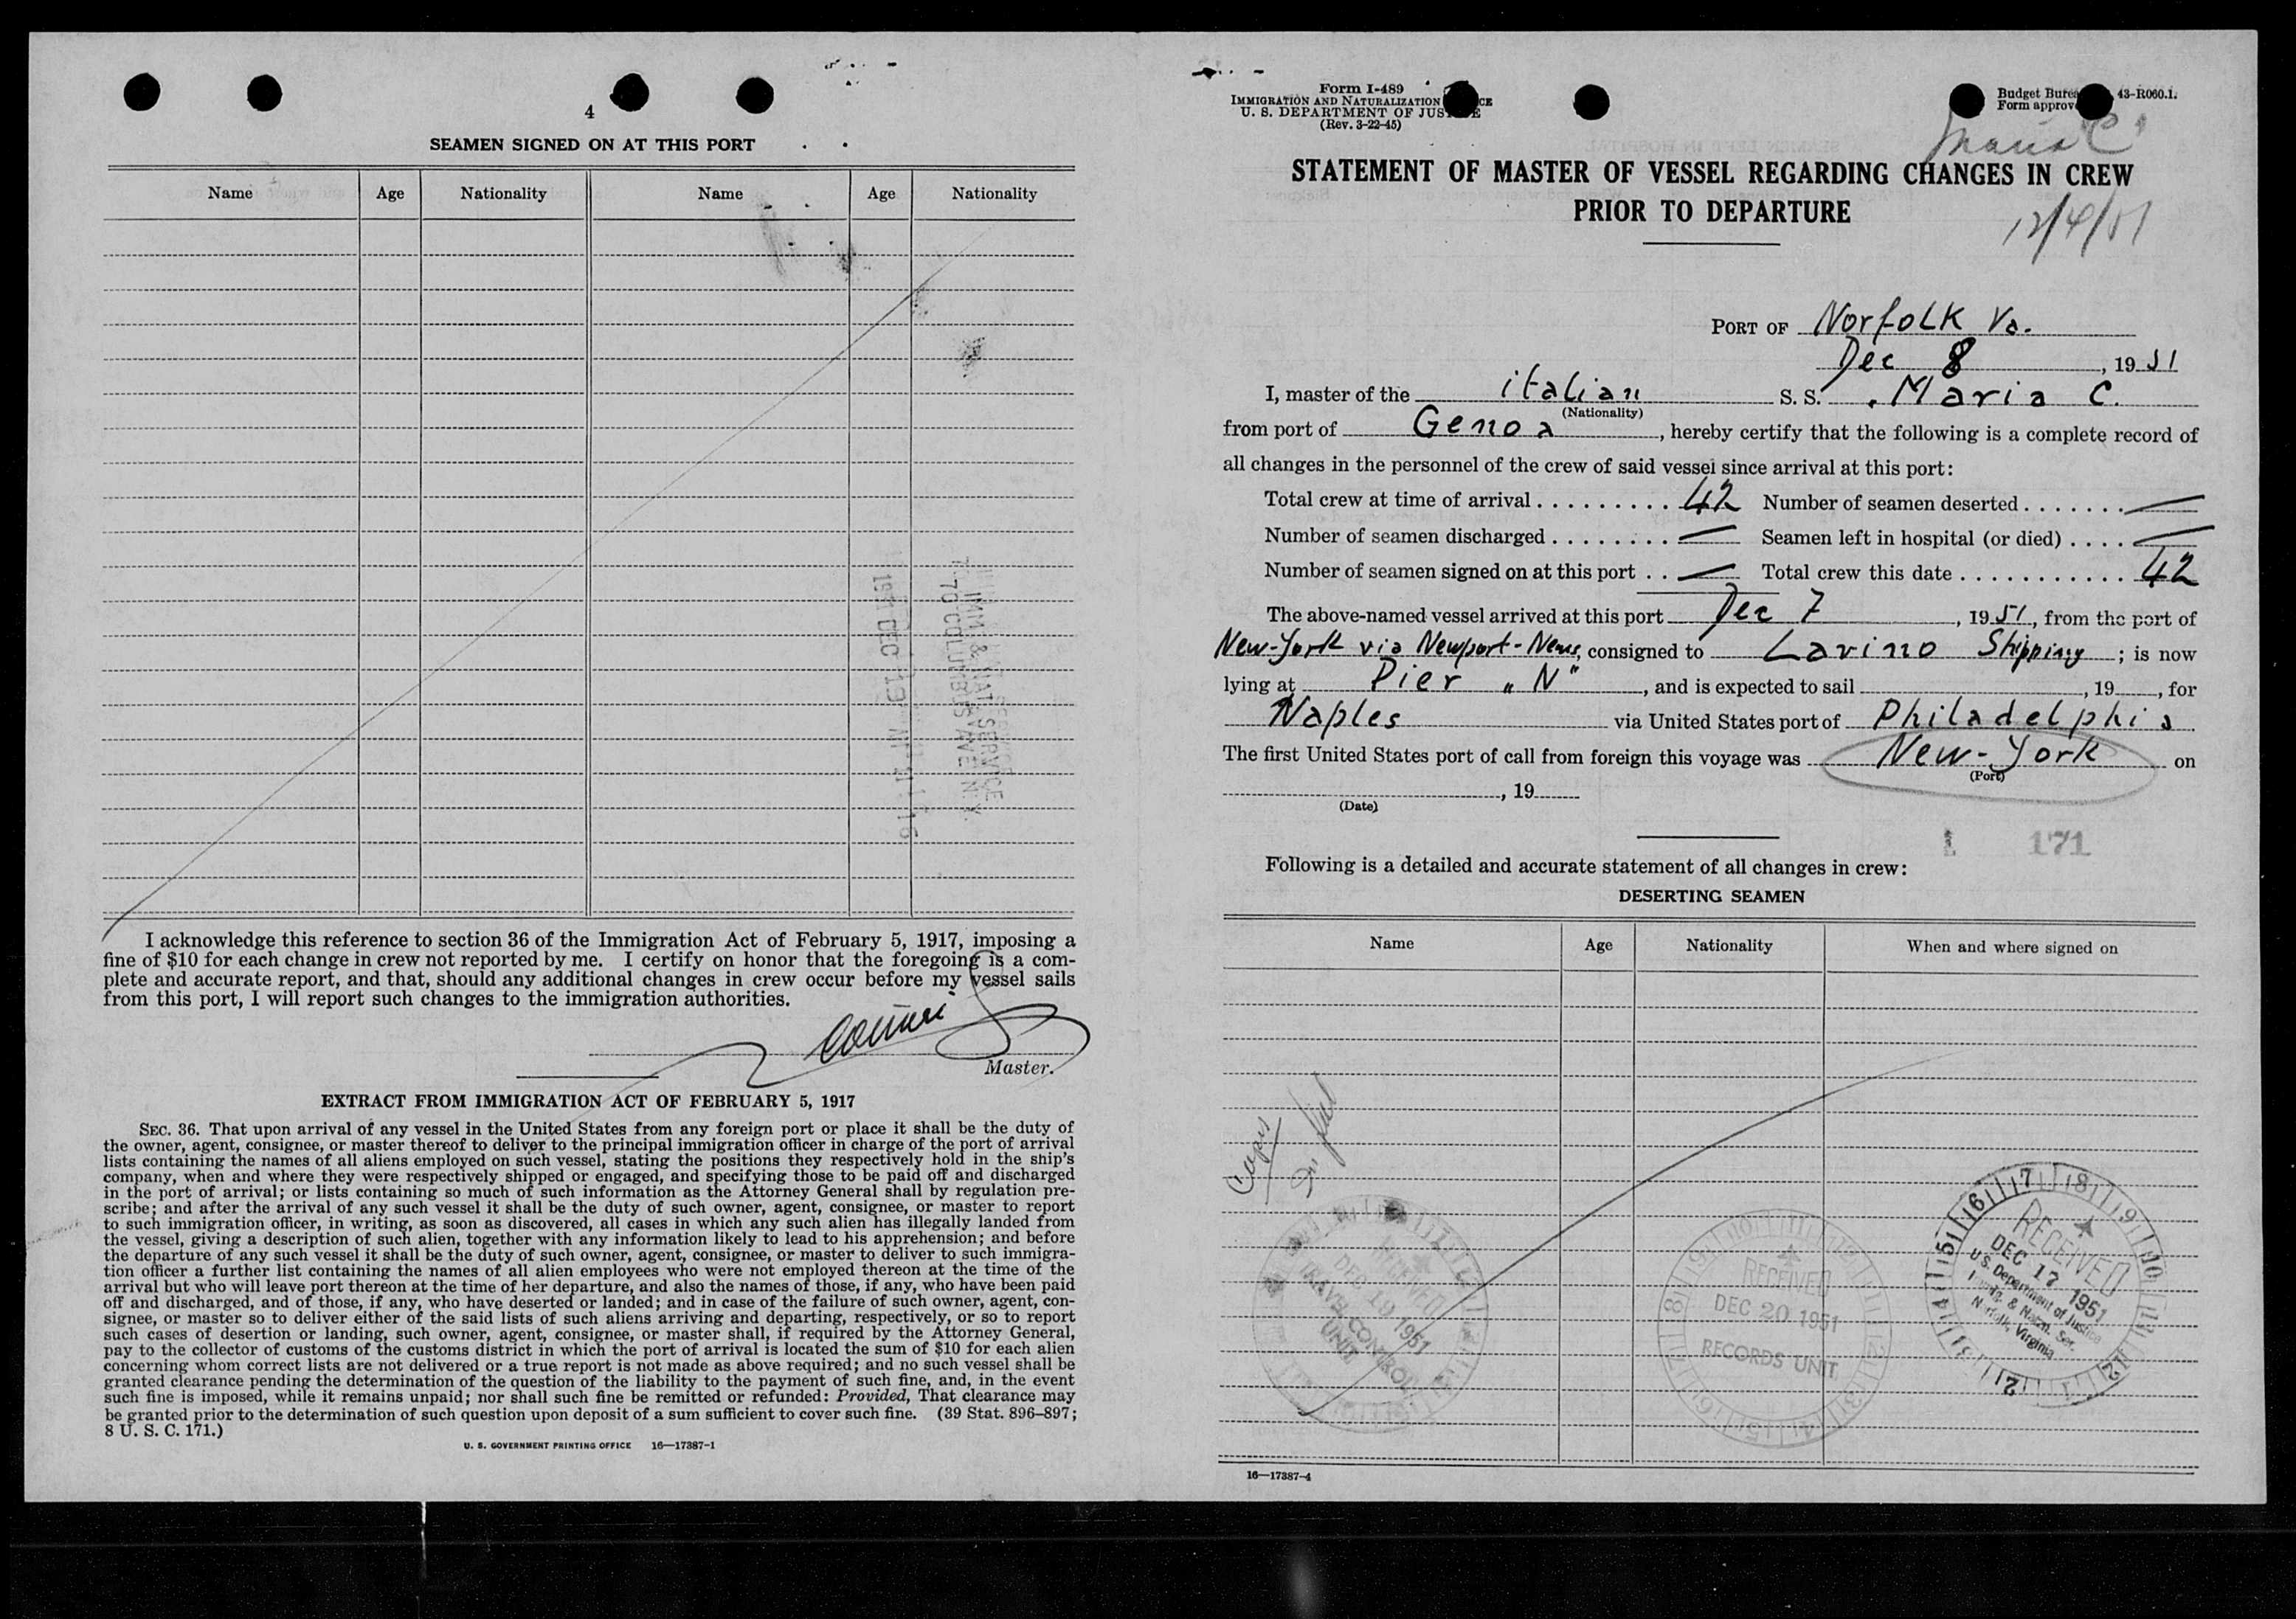 4
SEAMEN SIGNED ON AT THIS PORT
Name Age Nationality Name Age Nationality
I acknowledge this reference to section 36 of the Immigration Act of February 5, 1917, imposing a
fine of $10 for each change in crew not reported by me. I certify on honor that the foregoing is a com-
plete and accurate report, and that, should any additional changes in crew occur before my vessel sails
from this port, I will report such changes to the immigration authorities.
Master.
EXTRACT FROM IMMIGRATION ACT OF FEBRUARY 5, 1917
SEC. 36. That upon arrival of any vessel in the United States from any foreign port or place it shall be the duty of
the owner, agent, consignee, or master thereof to deliver to the principal immigration officer in charge of the port of arrival
lists containing the names of all aliens employed on such vessel, stating the positions they respectively hold in the ship's
company, when and where they were respectively shipped or engaged, and specifying those to be paid off and discharged
in the port of arrival; or lists containing so much of such information as the Attorney General shall by regulation pre-
scribe; and after the arrival of any such vessel it shall be the duty of such owner, agent, consignee, or master to report
to such immigration officer, in writing, as soon as discovered, all cases in which any such alien has illegally landed from
the vessel, giving a description of such alien, together with any information likely to lead to his apprehension; and before
the departure of any such vessel it shall be the duty of such owner, agent, consignee, or master to deliver to such immigra-
tion officer a further list containing the names of all alien employees who were not employed thereon at the time of the
arrival but who will leave port thereon at the time of her departure, and also the names of those, if any, who have been paid
off and discharged, and of those, if any, who have deserted or landed; and in case of the failure of such owner, agent, con-
signee, or master so to deliver either of the said lists of such aliens arriving and departing, respectively, or so to report
such cases of desertion or landing, such owner, agent, consignee, or master shall, if required by the Attorney General,
pay to the collector of customs of the customs district in which the port of arrival is located the sum of $10 for each alien
concerning whom correct lists are not delivered or a true report is not made as above required; and no such vessel shall be
granted clearance pending the determination of the question of the liability to the payment of such fine, and, in the event
such fine is imposed, while it remains unpaid; nor shall such fine be remitted or refunded: Provided, That clearance may
be granted prior to the determination of such question upon deposit of a sum sufficient to cover such fine. (39 Stat. 896–897;
8 U. S. C. 171.)
U. S. GOVERNMENT PRINTING OFFICE 16—17387-1
Form I-489
IMMIGRATION AND NATURALIZATION
U. S. DEPARTMENT OF JUSTICE
(Rev. 3-22-45)
Budget Bureau 43-R060.1.
Form approved
Maria C
STATEMENT OF MASTER OF VESSEL REGARDING CHANGES IN CREW
PRIOR TO DEPARTURE
12/4/51
PORT OF Norfolk Va.
Dec 8, 1951
I, master of the italian S. S. Maria C.
(Nationality)
from port of Genoa, hereby certify that the following is a complete record of
all changes in the personnel of the crew of said vessel since arrival at this port:
Total crew at time of arrival . . . . . . . . . . 42 Number of seamen deserted . . . . . . . —
Number of seamen discharged . . . . . . . . — Seamen left in hospital (or died) . . . . —
Number of seamen signed on at this port . . — Total crew this date . . . . . . . . . . . . 42
The above-named vessel arrived at this port Dec 7, 1951, from the port of
New-York via Newport-News, consigned to Lavino Shipping; is now
lying at Pier "N", and is expected to sail , 19 , for
Naples via United States port of Philadelphia
The first United States port of call from foreign this voyage was New-York on
(Port)
, 19
(Date)
1 171
Following is a detailed and accurate statement of all changes in crew:
DESERTING SEAMEN
Name Age Nationality When and where signed on
RECEIVED
DEC 19 1951
CONTROL
UNIT
RECEIVED
DEC 20 1951
RECORDS UNIT
RECEIVED
DEC 17 1951
U.S. Department of Justice
Immig. & Natzn. Ser.
Norfolk, Virginia
16—17387-4